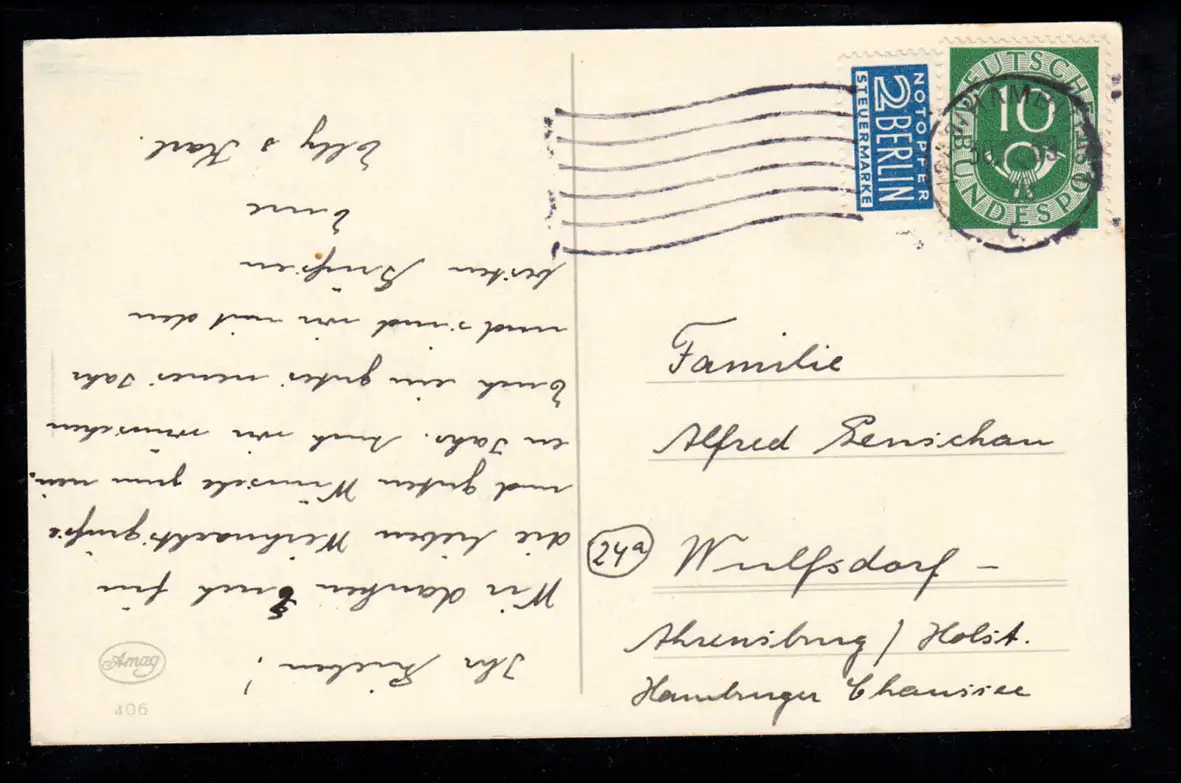 Ihr Lieben!
Wir danken Euch für
die lieben Weihnachtsgrüße
und guten Wünsche zum neu-
en Jahr. Auch wir wünschen
Euch ein gutes neues Jahr
und sind wir mit den
besten Grüßen
Eure
Elly & Karl.
NOTOPFER
2 BERLIN
STEUERMARKE
DEUTSCHE
10
BUNDESPOST
Familie
Alfred
24a
Wulfsdorf -
Ahrensburg / Holst.
Hamburger Chaussee
Amag
406